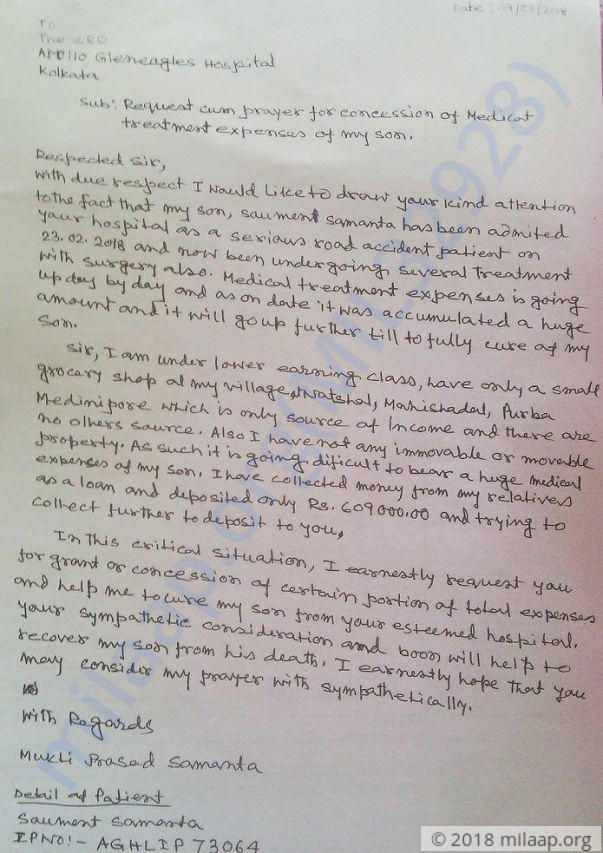 Date: 09/03/2018
To
The CEO
Apollo Gleneagles Hospital
Kolkata
Sub: Request cum prayer for concession of Medical
treatment expenses of my son.
Respected Sir,
With due respect I would like to draw your kind attention
to the fact that my son, Saument Samanta has been admited
your hospital as a serious road accident patient on
23.02.2018 and now been undergoing several treatment
with surgery also. Medical treatment expenses is going
up day by day and as on date it was accumulated a huge
amount and it will go up further till to fully cure of my
Son.
Sir, I am under lower earning class, have only a small
grocery shop at my village, Natshal, Mahishadal, Purba
Medinipore which is only source of income and there are
no others source. Also I have not any immovable or movable
property. As such it is going dificult to bear a huge medical
expenses of my son. I have collected money from my relatives
as a loan and deposited only Rs. 609000.00 and trying to
collect further to deposit to you.
In this critical situation, I earnestly request you
for grant or concession of certain portion of total expenses
and help me to cure my son from your esteemed hospital.
your sympathetic consideration and boon will help to
recover my son from his death. I earnestly hope that you
may consider my prayer with sympathetically.
With Regards
Mukti Prasad Samanta
Detail of Patient
Saument Samanta
IPNO:- AGHLIP 73064
© 2018 milaap.org